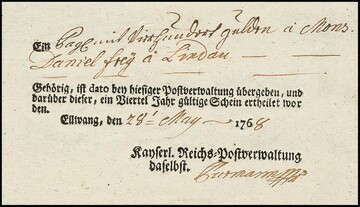 Ein Paq. mit Vierhundert gulden à Mons.
Daniel freÿ à Lindau
Gehörig, ist dato bey hiesiger Postverwaltung übergeben, und
darüber dieser, ein Viertel Jahr gültige Schein ertheilet wor
den.
Ellwang, den 28.t May 1768
Kayserl. Reichs-Postverwaltung
daselbst.